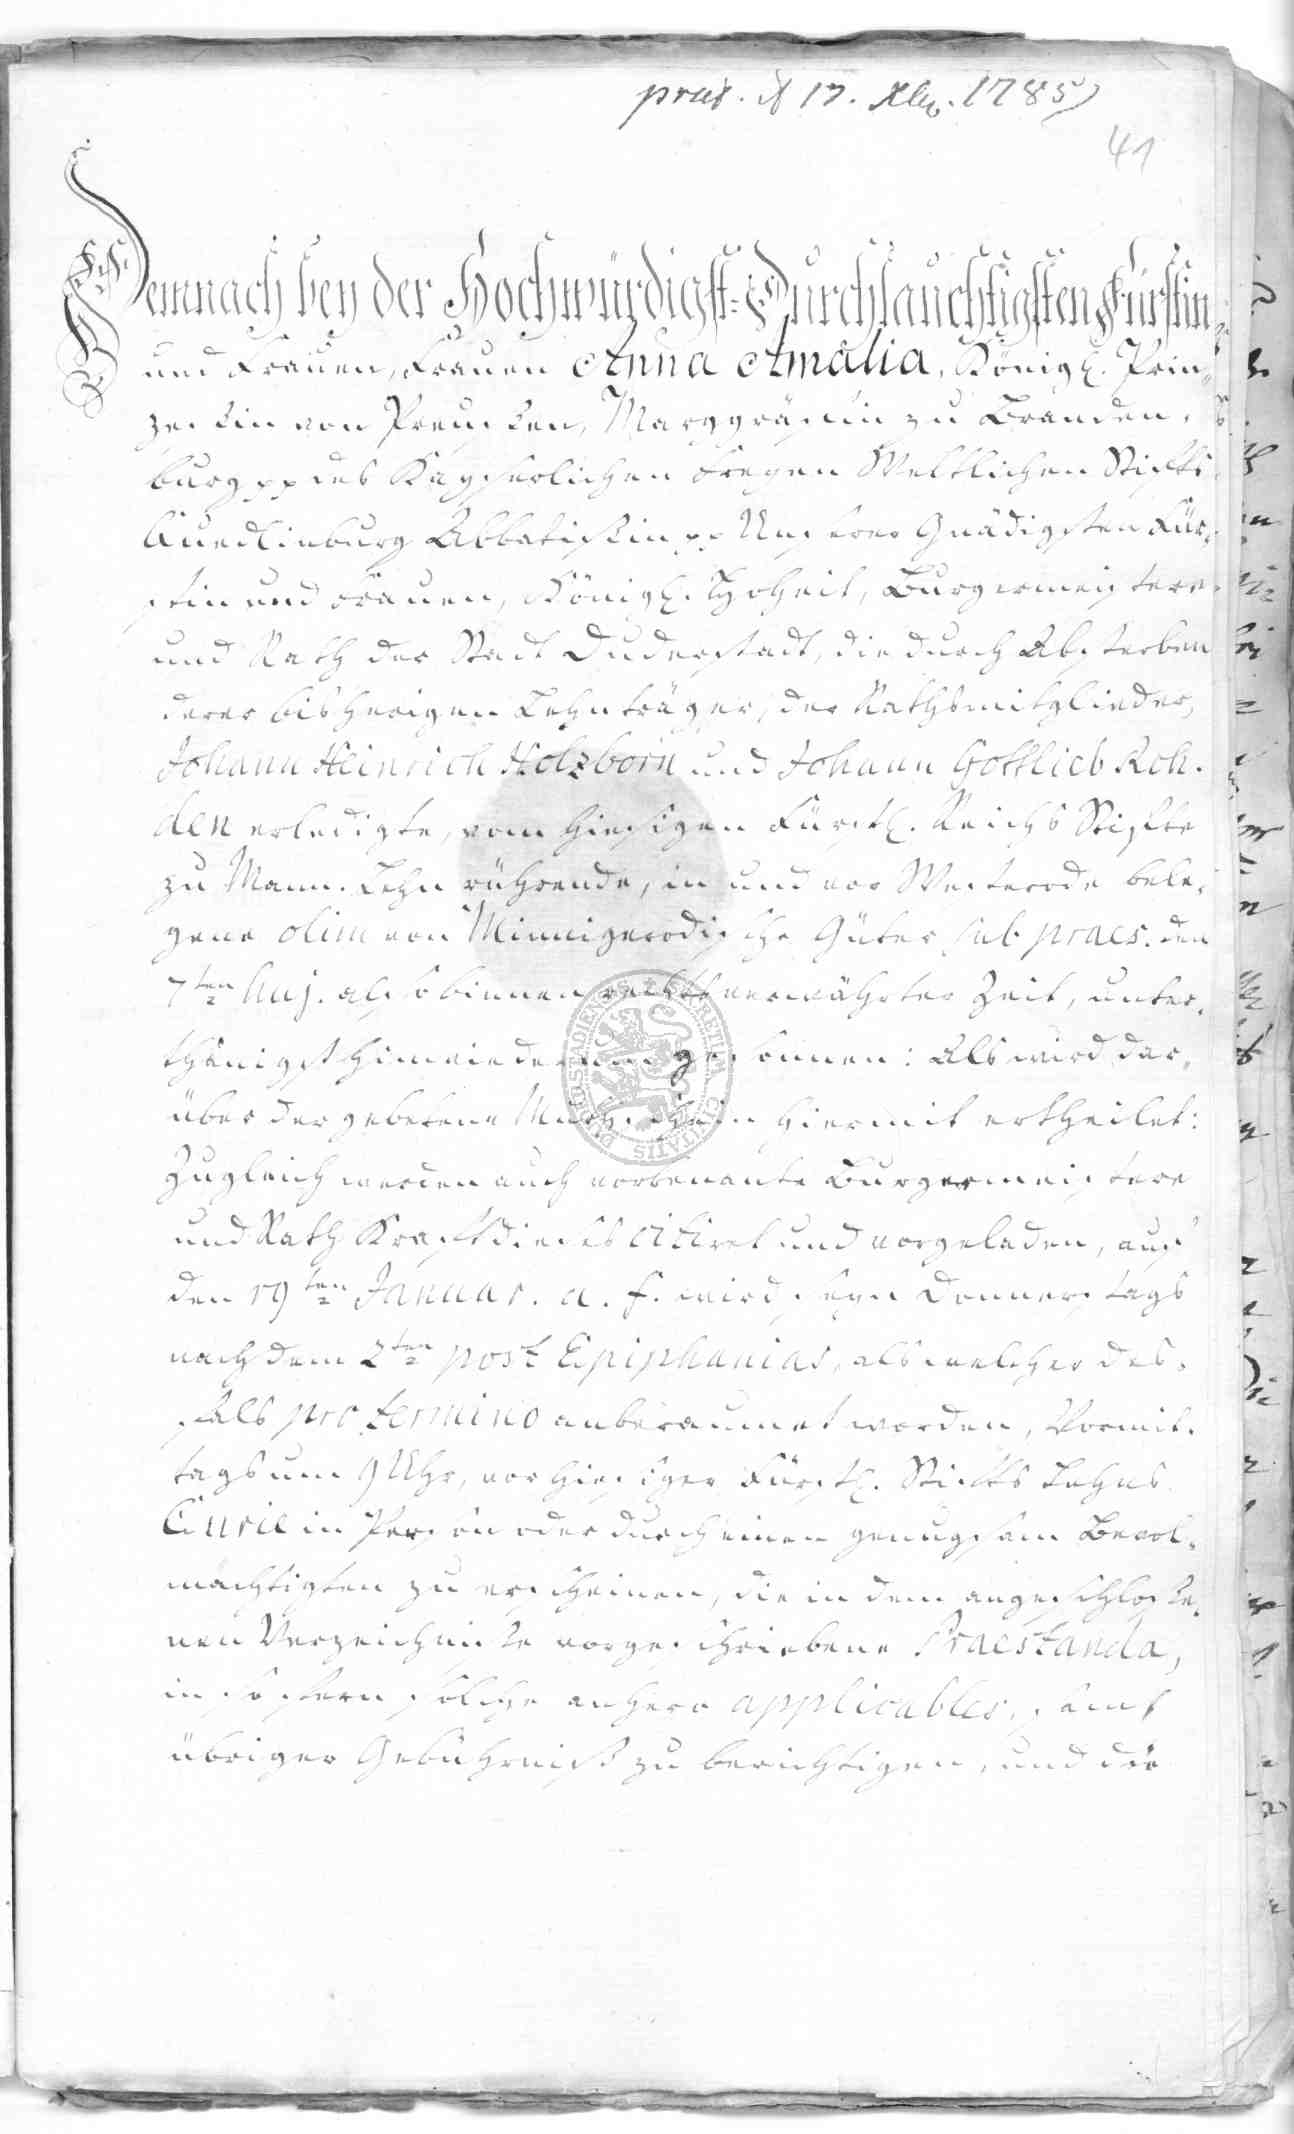 praes. d 17. Xbr. 1785
41
Demnach bey der Hochwürdigst-Durchlauchtigsten Fürstin
und Frauen, Frauen Anna Amalia, Königl. Prin-
zeßin von Preußen, Marggräfin zu Branden-
burg pp des Kayserlichen freyen Weltlichen Stifts
Quedlinburg Abbatißin pp Unserer Gnädigsten Für-
stin und Frauen, Königl. Hoheit, Burgermeistere
und Rath der Stadt Duderstadt, die durch Absterben
derer bisherigen Lehnträger, der Rathsmitglieder,
Johann Heinrich Holzborn und Johann Gottlieb Roh-
den erledigte, vom hiesigen Fürstl. Reichs Stifte
zu Mann-Lehn rührende, in und vor Westerode bele-
gene olim von Minnigerodische Güter sub praes. den
7ten huj. also binnen rechts verwährter Zeit, unter-
thänigst hinwiederum gesonnen: Als wird dar-
über der gebetene Muth-Schein hiermit ertheilet:
Zugleich werden auch vorbenante Burgermeistere
und Rath Kraft dieses citiret und vorgeladen, auf
den 19ten Januar. a. f. wird seyn Donnerstags
nach dem 2ten post Epiphanias, als welcher des-
fals pro termino anberaumet worden, Vormit-
tags um 9 Uhr, vor hiesiger Fürstl. Stifts Lehns
Curie in Person oder durch einen genugsam Bevol-
mächtigten zu erscheinen, die in dem angeschloße-
nen Verzeichniße vorgeschriebene Praestanda,
in so fern solche anhero applicables, samt
übriger Gebührniß zu berichtigen, und die
SECRETUM CIVITATIS DUDERSTADIENSIS